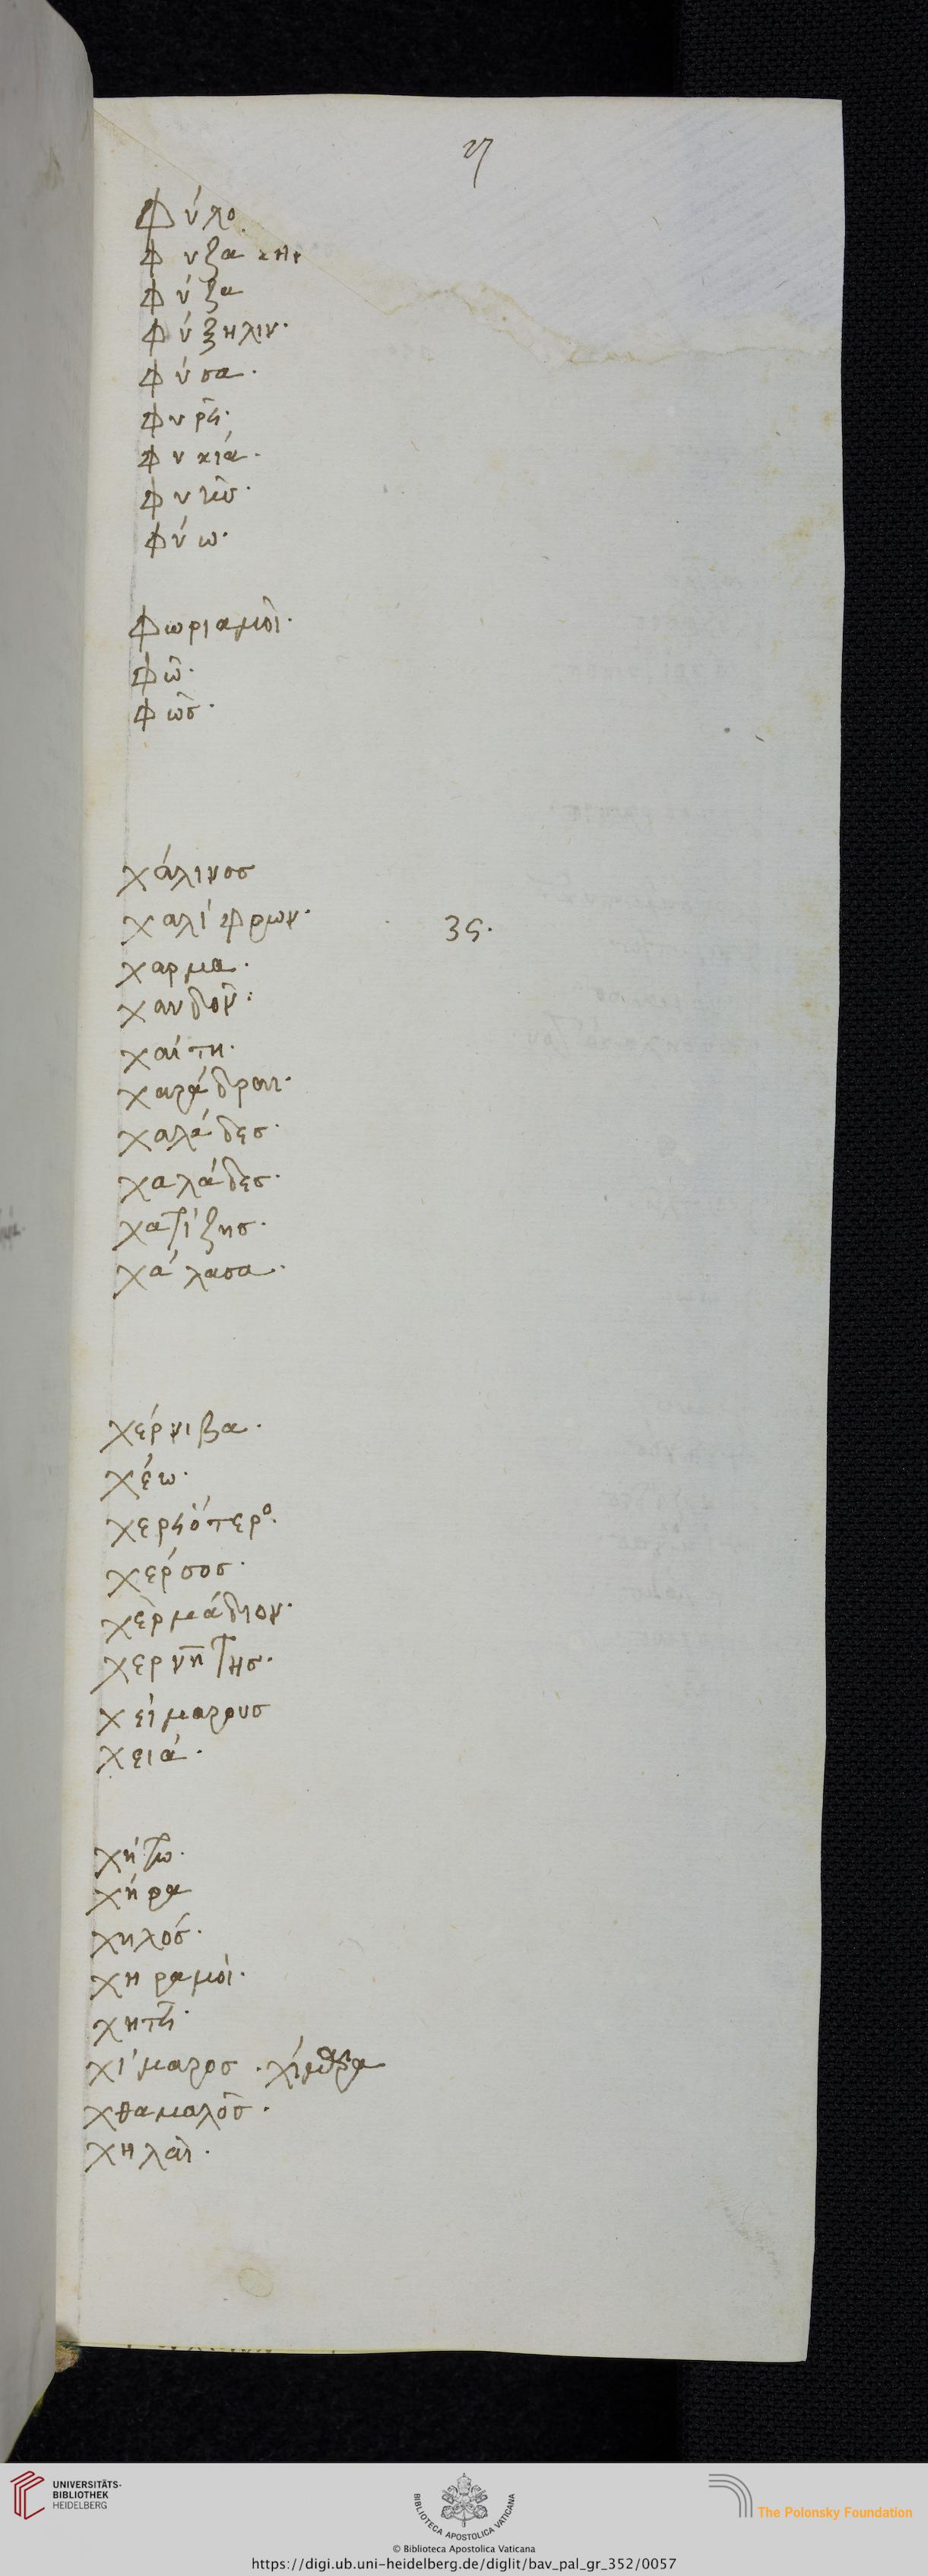 27
Φύλο.
Φυζα κην
Φύζα
Φύξηλιν·
Φύσα·
Φυρῆς·
Φυκιά·
Φυτῶ·
Φύω·
Φωριαμοὶ·
Φῶ·
Φὼς·
χάλινοσ
χαλίφρων·
35.
χαρμα·
χανδὸν:
χαίτη·
χαράδραι·
χαλάδεσ·
χαλάδεσ·
χατίζησ·
χάλασα·
χέρνιβα·
χέω·
χερειότερο·
χέρσοσ·
χὲρμάδιον·
χερνήτησ·
χείμαρουσ
χειά·
χήτω·
χήρα
χηλόσ·
χηραμοὶ·
χίμαροσ · χίμαιρα
χθαμαλὸσ·
χηλαὶ·
UNIVERSITÄTS-
BIBLIOTHEK
HEIDELBERG
BIBLIOTECA APOSTOLICA VATICANA
The Polonsky Foundation
© Biblioteca Apostolica Vaticana
https://digi.ub.uni-heidelberg.de/diglit/bav_pal_gr_352/0057